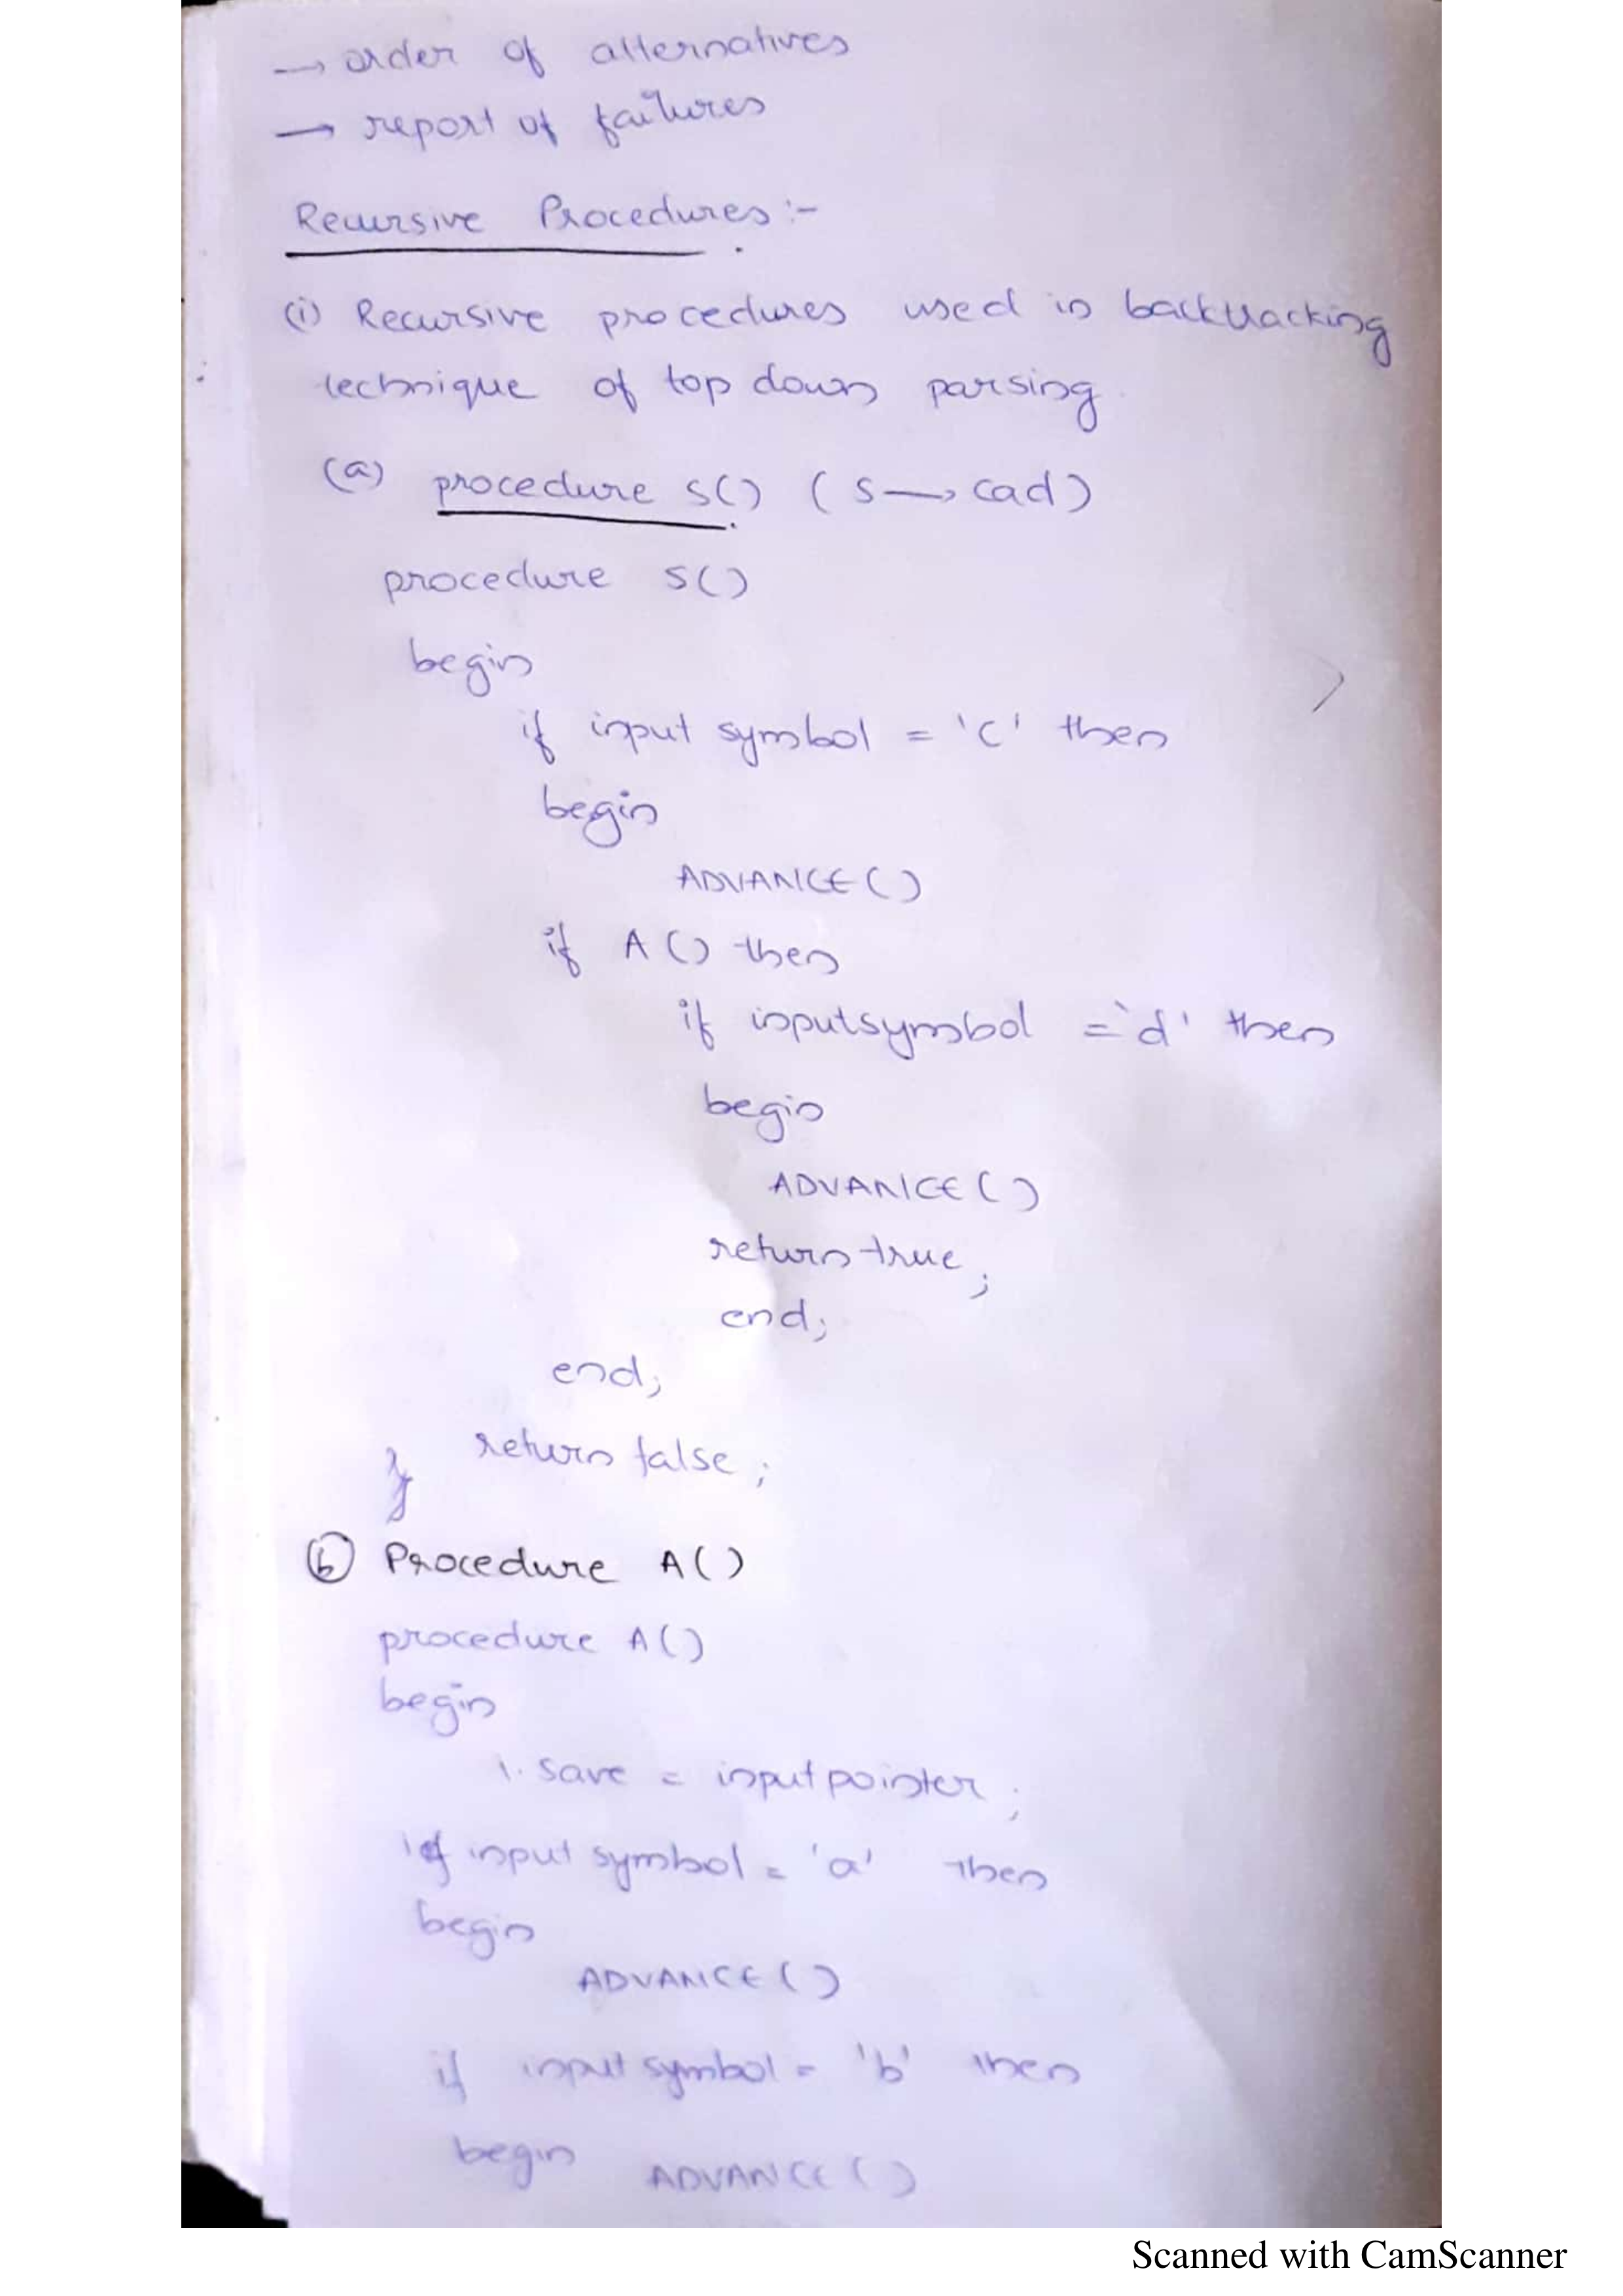 → order of alternatives
→ report of failures
Recursive Procedures :-
(i) Recursive procedures used in backtracking
technique of top down parsing.
(a) procedure S() ( S → cad )
procedure S()
begin
if input symbol = 'c' then
begin
ADVANCE ( )
if A () then
if inputsymbol = 'd' then
begin
ADVANCE ( )
return true ;
end;
end;
return false ;
(b) Procedure A()
procedure A()
begin
1. Save = input pointer ;
if input symbol = 'a' then
begin
ADVANCE ( )
if input symbol = 'b' then
begin ADVANCE ( )
Scanned with CamScanner